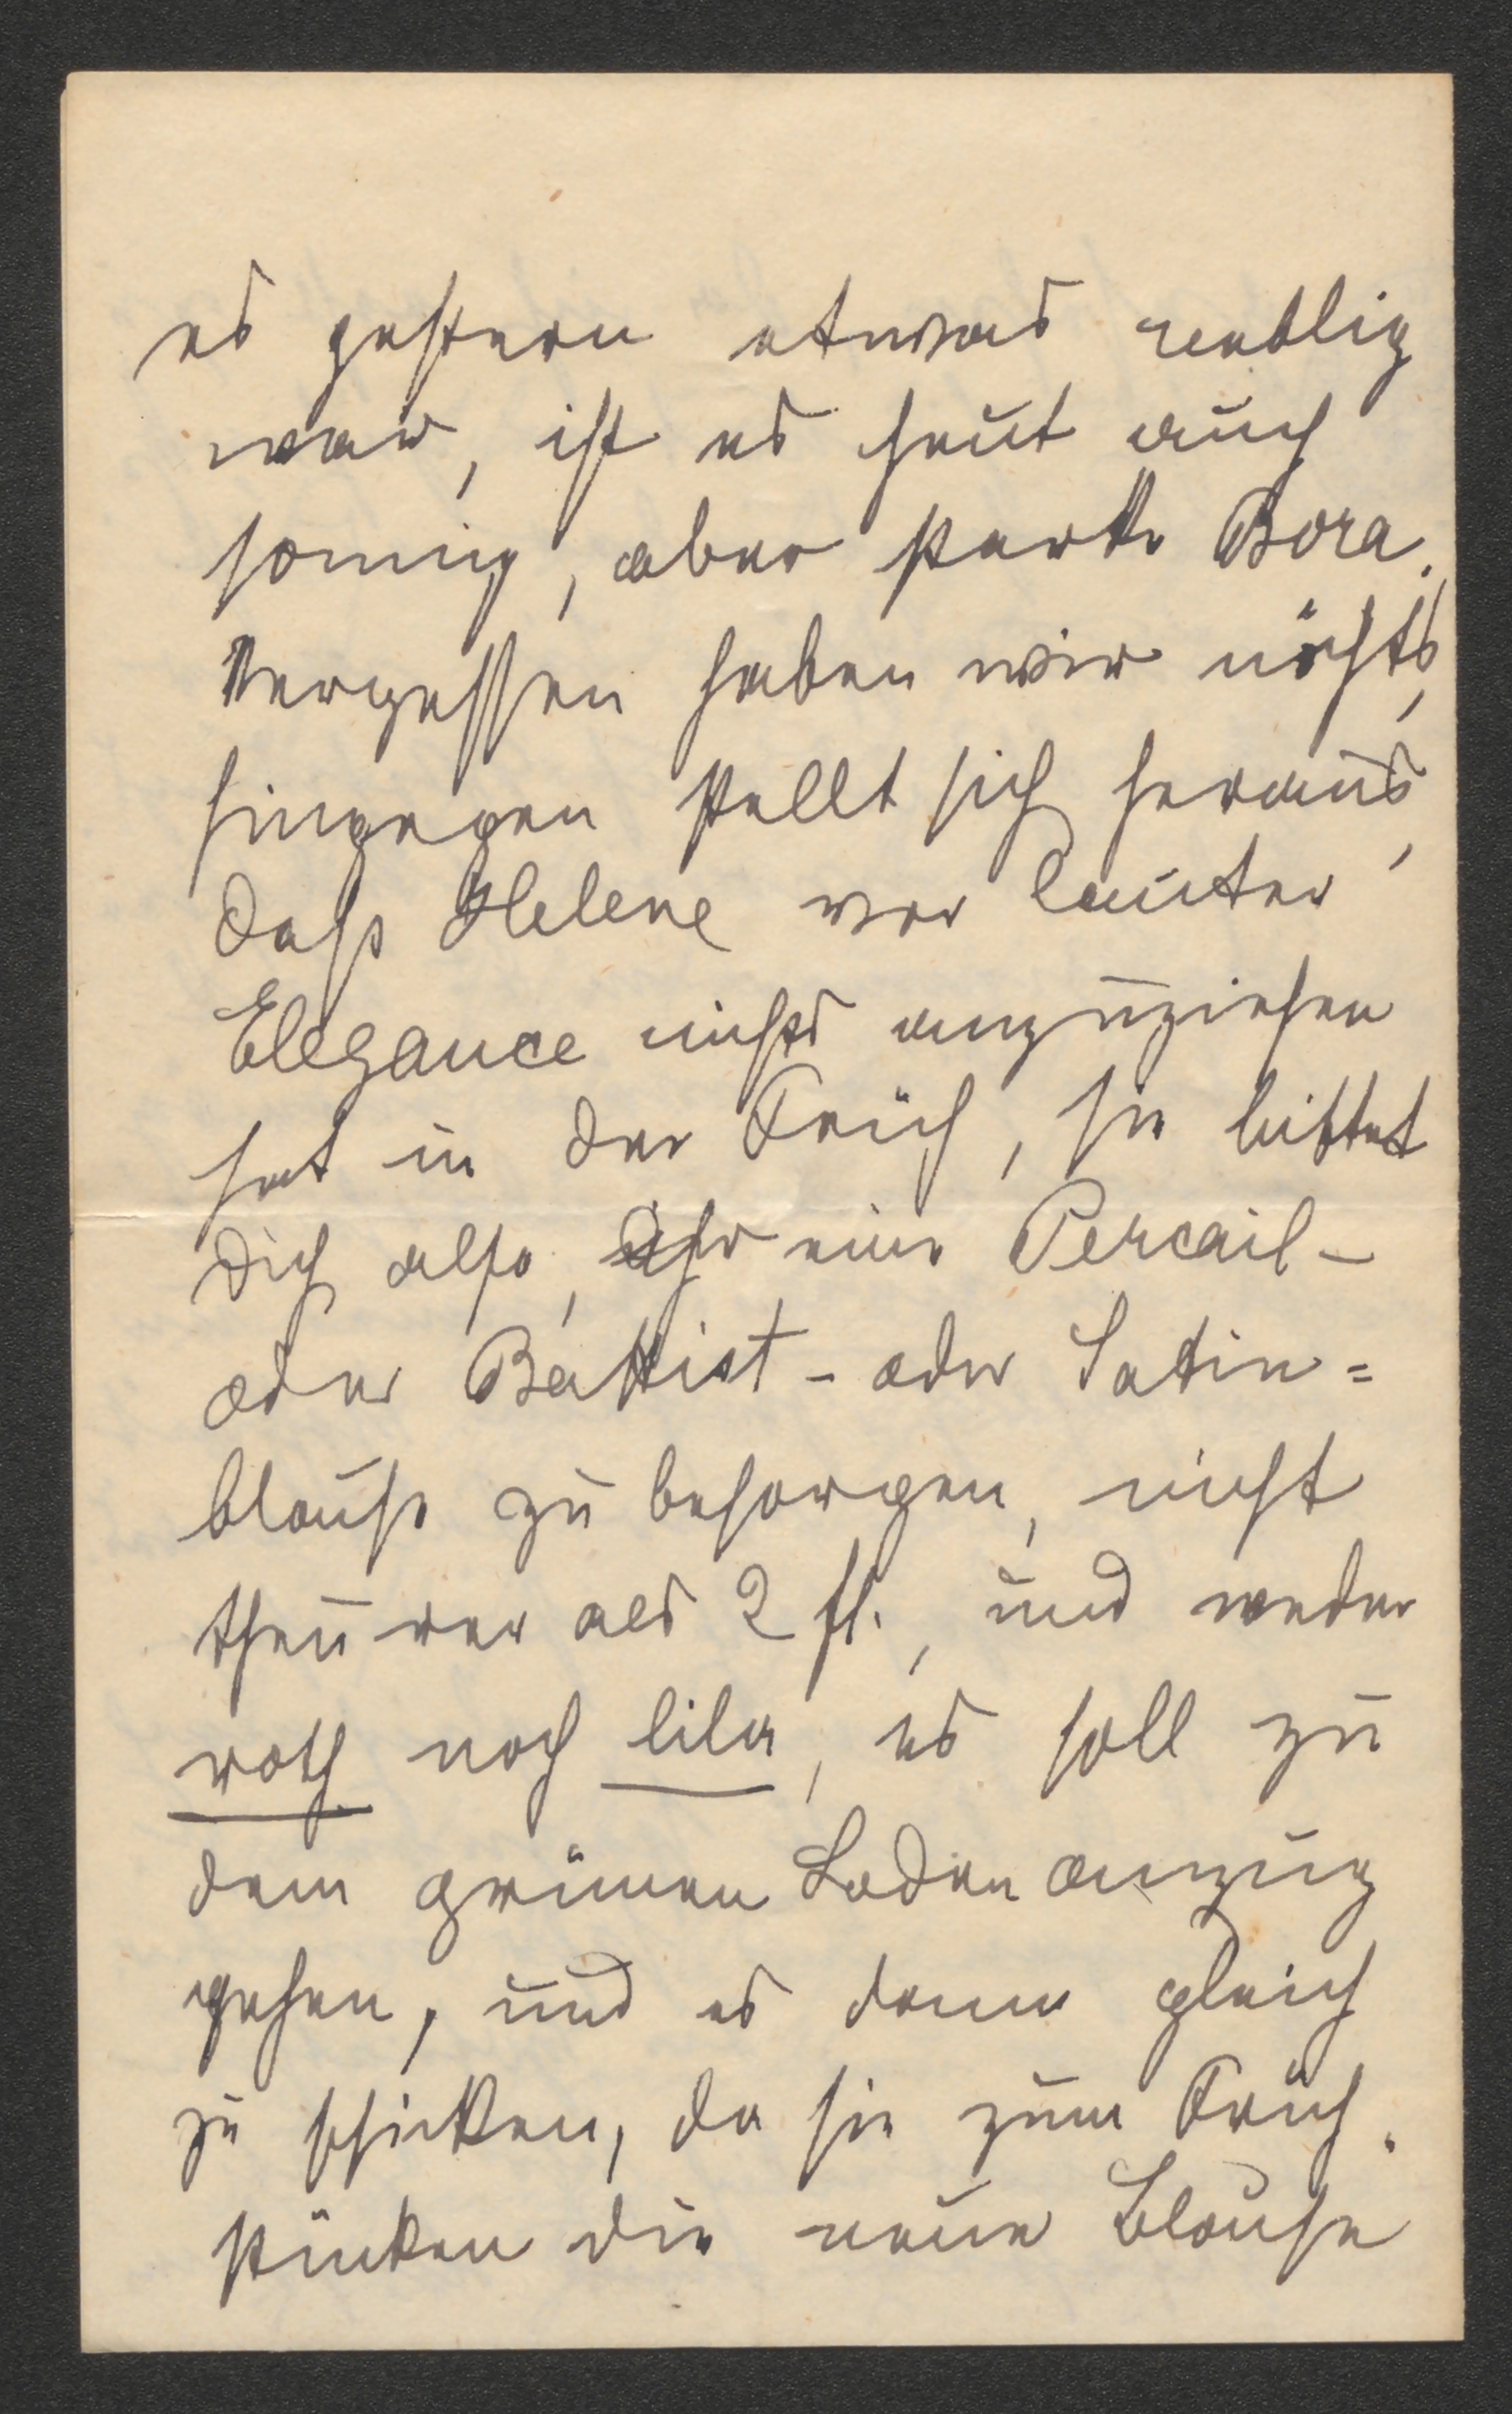 es gestern etwas neblig
war, ist es heut auch
sonnig, aber starke Bora.
Vergessen haben wir nichts,
hingegen stellt sich heraus,
daß Helene vor lauter
Elegance nichts anzuziehen
hat in der Früh, sie bittet
Dich also, ihr eine Percail-
oder Battist- oder Satin=
blouse zu besorgen, nicht
theurer als 2 fl., und weder
roth noch lila, es soll zu
dem grünen Lodenanzug
gehen, und es dann gleich
zu schicken, da sie zum Früh-
stücken die neue Blouse